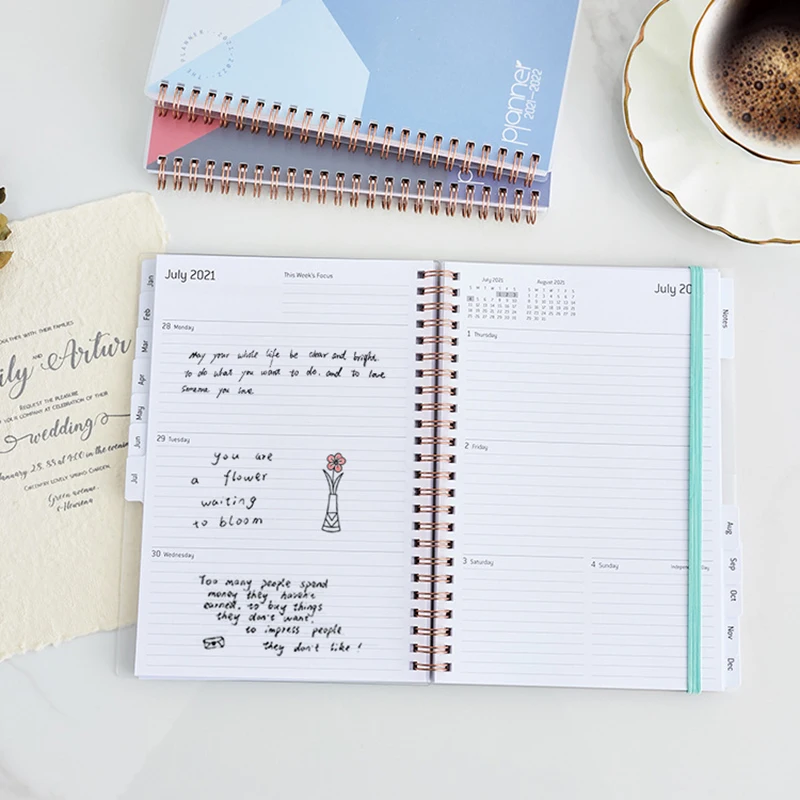 THE PLANNER 2021-2022
planner
2021-2022
July 2021
This Week's Focus
28 Monday
May your whole life be clear and bright.
to do what you want to do. and to love
someone you love
29 Tuesday
you are
a flower
waiting
to bloom
30 Wednesday
Too many people spend
money they haven't
earned. to buy things
they don't want.
to impress people
they don't like!
Jan
Feb
Mar
Apr
May
Jun
Jul
July 2021
August 2021
July 20
1 Thursday
2 Friday
3 Saturday
4 Sunday
Day
Notes
Aug
Sep
Oct
Nov
Dec
TOGETHER WITH THEIR FAMILIES
AND
Artur
REQUEST THE PLEASURE
YOUR COMPANY AT CELEBRATION OF THEIR
wedding
January 28, at 9:00 in the evening
SPRING GARDEN
Green avenue